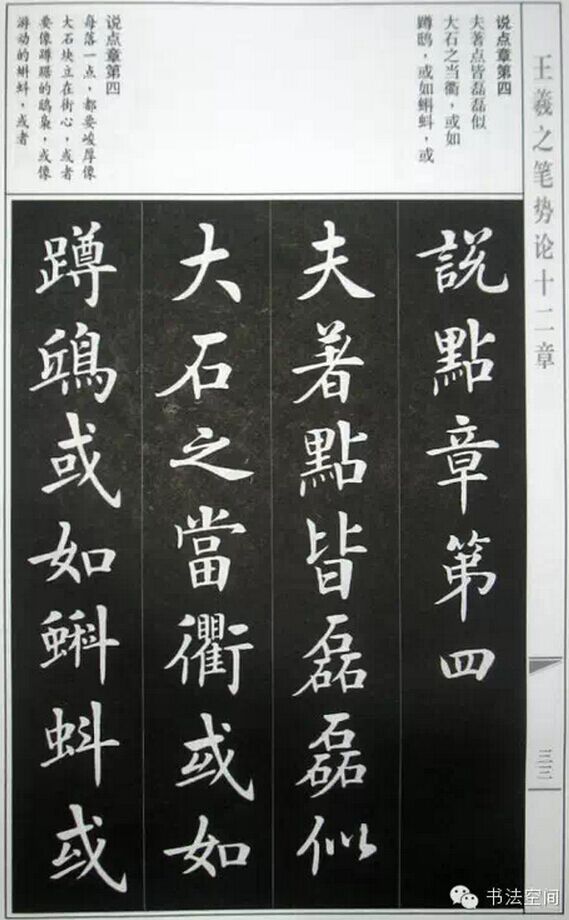 王羲之笔势论十二章
说点章第四
夫著点皆磊磊似
大石之当衢，或如
蹲鸱，或如蝌蚪，或
说点章第四
每落一点，都要峻厚像
大石块立在街心，或者
要像蹲踞的鸱枭，或像
游动的蝌蚪，或者
說點章第四
夫著點皆磊磊似
大石之當衢或如
蹲鴟或如蝌蚪或
三三
书法空间